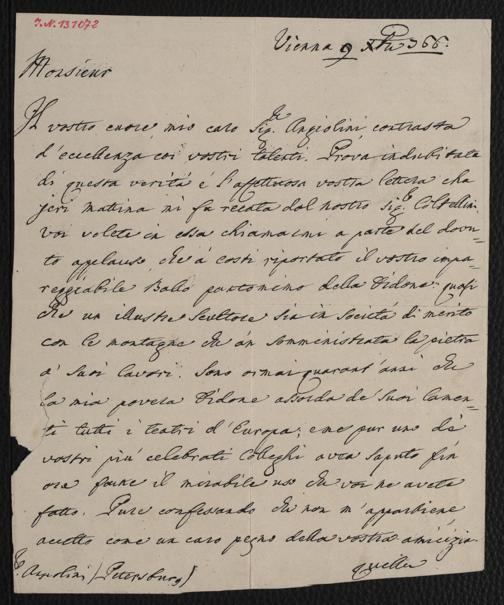 I.N. 131072
Vienna 9 Xbre 366.
Monsieur
Il vostro cuore, mio caro Sigre Angiolini, contrasta
d'eccellenza coi vostri talenti. Prova indubitata
di questa verità è l'affettuosa vostra lettera che
jeri mattina mi fu recata dal nostro Sigre Coltellini
voi volete in essa chiamarmi a parte del dovu-
to applauso, che à costì riportato il vostro impa-
reggiabile Ballo pantomimo della Didone: quasi
che un illustre Scultore sia in società di merito
con le montagne che àn somministrata la pietra
a' suoi lavori. Sono ormai quarant'anni che
la mia povera Didone assorda de' suoi lamen-
ti tutti i teatri d'Europa; e ne pur uno de'
vostri più celebrati Colleghi avea saputo fin
ora farne il mirabile uso che voi ne avete
fatto. Pure confessando che non m'appartiene
accetto come un caro pegno della vostra amicizia
quella
Angiolini (Petersburg)